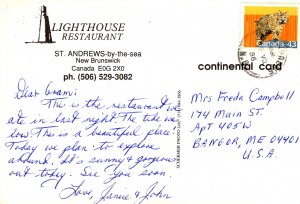 LIGHTHOUSE
RESTAURANT
ST. ANDREWS-by-the-sea
New Brunswick
Canada E0G 2X0
ph. (506) 529-3082
Dear Grami:
This is the restaurant we
ate in last night. The tide was
low. This is a beautiful place.
Today we plan to explore
around. It's sunny & gorgeous
out today. See you soon.
Love, Janie & John
Canada 43
continental card
Mrs Freda Campbell
174 Main St.
Apt 405W
BANGOR, ME 04401
U.S.A.